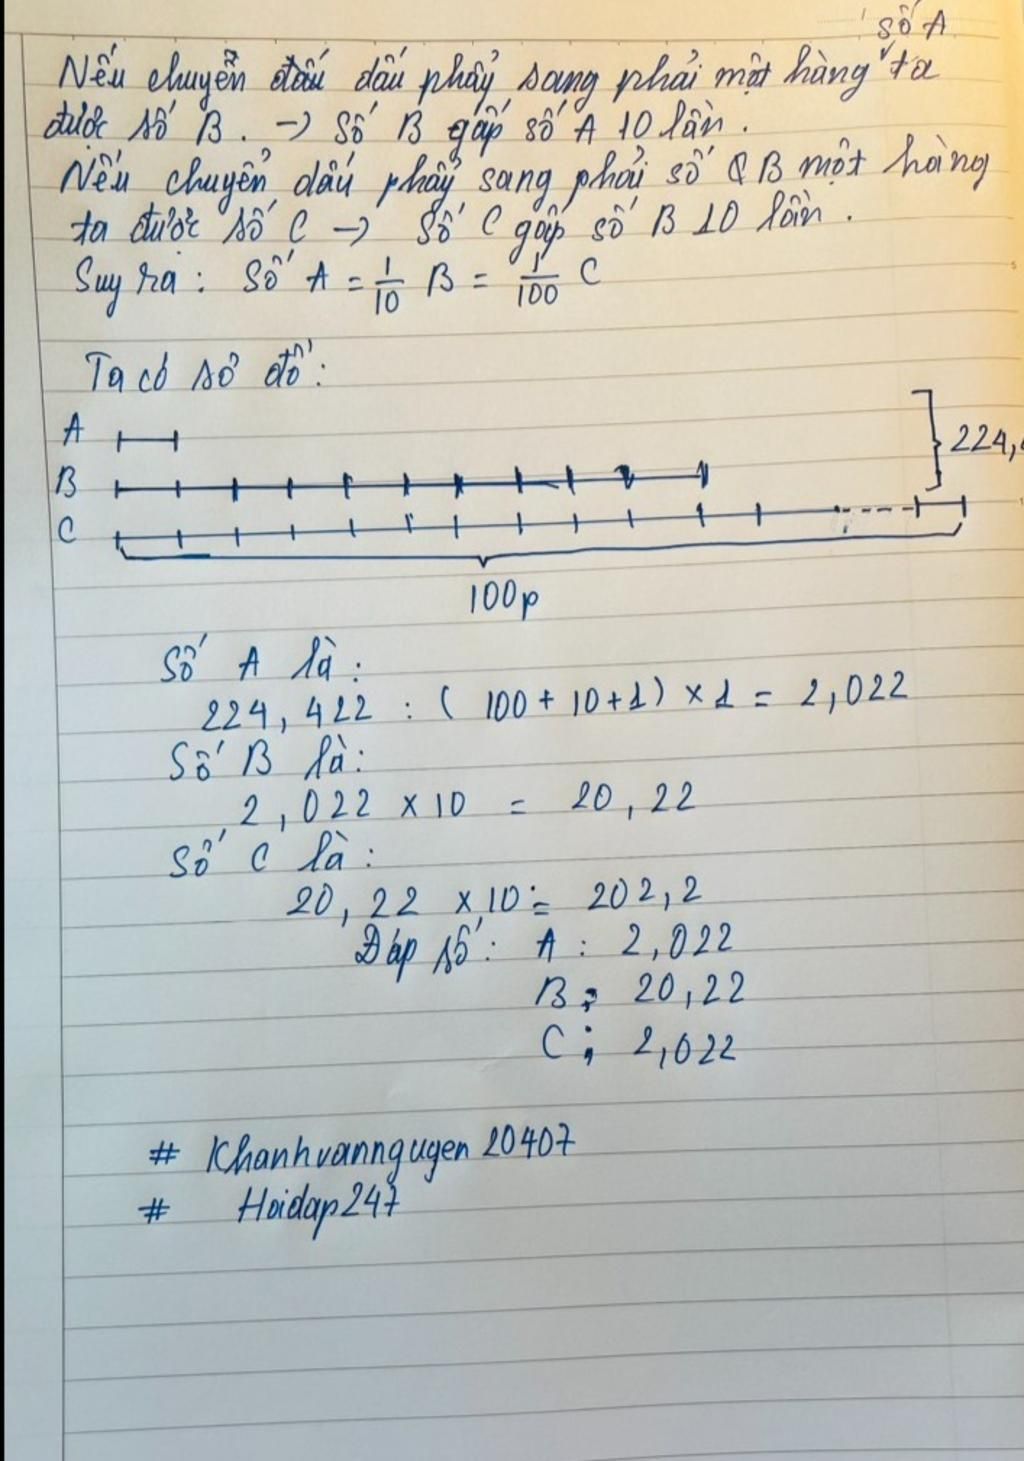 số A
Nếu chuyển dấu dấu phẩy sang phải một hàng ta
được số B. → Số B gấp số A 10 lần.
Nếu chuyển dấu phẩy sang phải số B một hàng
ta được số C → Số C gấp số B 10 lần.
Suy ra: Số A = 1/10 B = 1/100 C
Ta có sơ đồ:
A
224,
B
C
100p
Số A là:
224,422 : (100 + 10 + 1) × 1 = 2,022
Số B là:
2,022 × 10 = 20,22
Số C là:
20,22 × 10 = 202,2
Đáp số: A: 2,022
B: 20,22
C: 2,022
# Khanhvannguyen20407
# Hoidap247